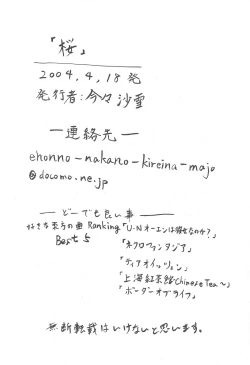 『桜』
2004,4,18 発
発行者:今々沙雪
―連絡先―
ehonno-nakano-kireina-majo
@docomo.ne.jp
― どーでも良い事 ―
好きな東方の曲 Ranking『U・Nオーエンは彼女なのか?』
Best5
『ネクロファンタジア』
『ティアオイエツォン』
『上海紅茶館 Chinese Tea〜』
『ボーダーオブライフ』
無断転載はいけないと思います。